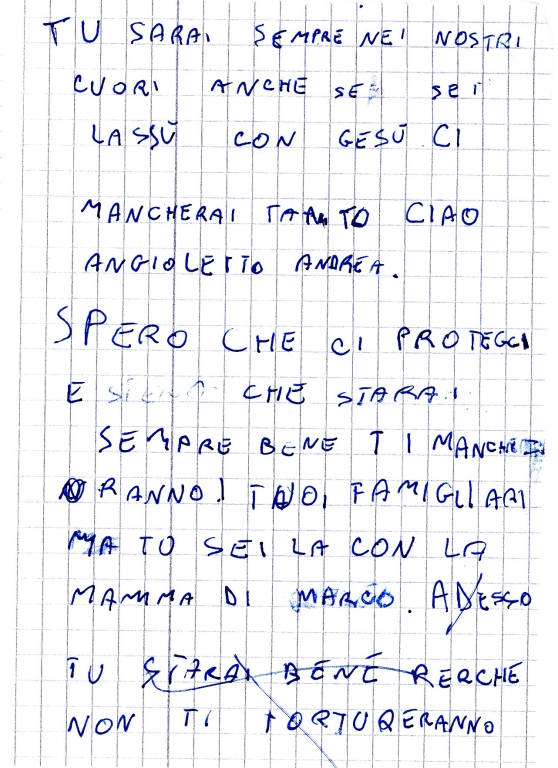 TU SARAI SEMPRE NEI NOSTRI
CUORI ANCHE SE SEI
LASSÙ CON GESÙ CI
MANCHERAI TANTO CIAO
ANGIOLETTO ANDREA.
SPERO CHE CI PROTEGGI
E CHE STARAI
SEMPRE BENE TI MANCHE
RANNO I TUOI FAMIGLIARI
MA TU SEI LA CON LA
MAMMA DI MARCO. ADESSO
TU STARAI BENE PERCHÉ
NON TI TORTURERANNO